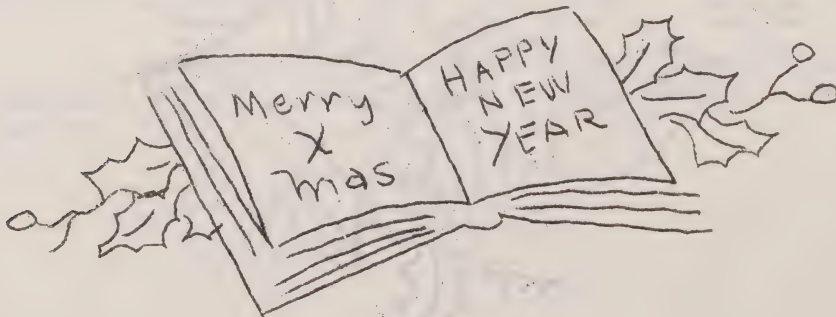 Merry
X
mas
HAPPY
NEW
YEAR